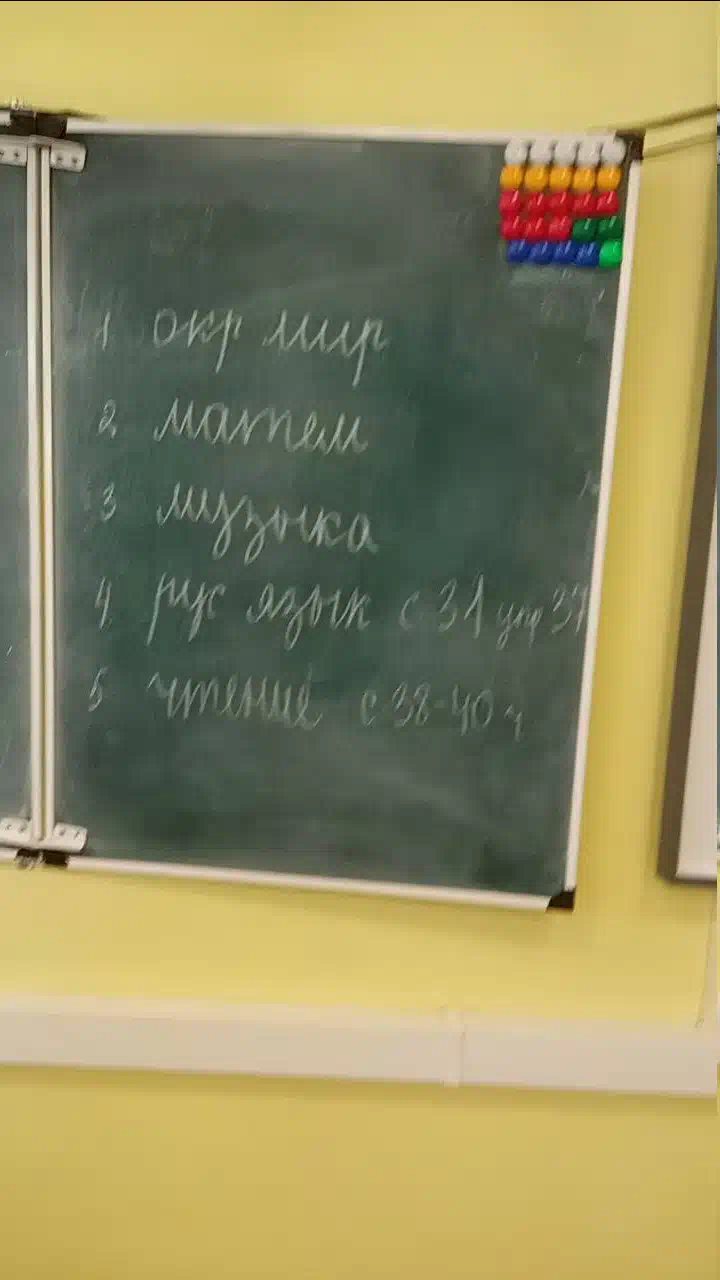 1 окр мир
2 матем
3 музыка
4 рус язык с 31 упр 37
5 чтение с 38-40 ч